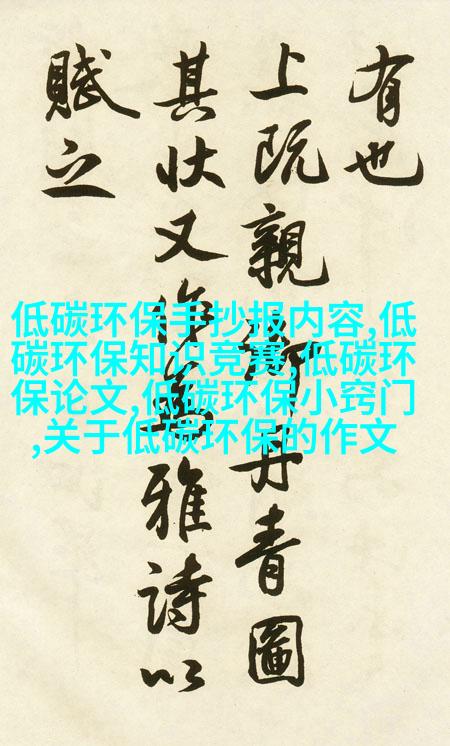 有也
上既親丹青圖
其状又作為雅詩以
賦之
低碳环保手抄报内容,低
碳环保知识竞赛,低碳环
保论文,低碳环保小窍门
,关于低碳环保的作文